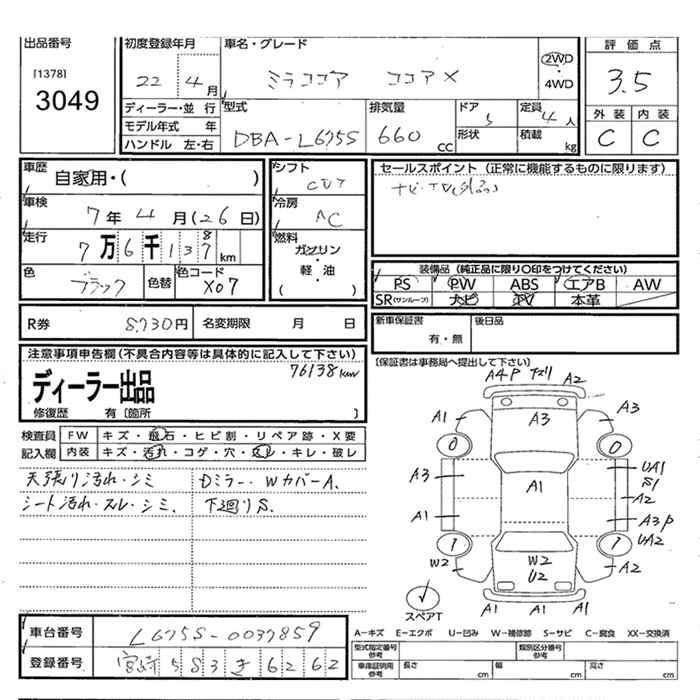 出品番号
[1378]
3049
初度登録年月
22 4月
車名・グレード
ミラココア ココア X
2WD
・
4WD
評価点
3.5
外装 内装
C C
ディーラー・並 行
モデル年式 年
ハンドル 左・右
型式
DBA-L675S
排気量
660 CC
ドア
5
形状
定員
4人
積載
kg
車歴
自家用・( )
車検
7年 4月 (26日)
走行
7万6千138km
色
ブラック
色替
色コード
X07
シフト
CVT
冷房
AC
燃料
ガソリン
・
軽・油
( )
セールスポイント (正常に機能するものに限ります)
ナビ・TV
装備品 (純正品に限り○印をつけてください)
PS PW ABS エアB AW
SR(サンルーフ) ナビ TV 本革
R券 8,730円 名変期限 月 日
新車保証書
有・無
後日品
[保証書は事務局へ提出して下さい]
注意事項申告欄(不具合内容等は具体的に記入して下さい)
76138km
ディーラー出品
修復歴 有 [箇所 ]
検査員 FW キズ・飛石・ヒビ割・リペア跡・X要
記入欄 内装 キズ・汚れ・コゲ・穴・スレ・キレ・破レ
天張り汚れ・シミ Dミラー・WカバーA.
シート汚れ・スレ・シミ. 下廻りS.
A4P アズリ A2
A1 A3 A3
0 0
A3 A1 UA1
S1
A2
A1 A3P
UA2
1 1
W2 W2 A2
U2
スペアT
A1 A1
A-キズ E-エクボ U-凹み W-補修跡 S-サビ C-腐食 XX-交換済
車台番号 L675S-0037859
登録番号 宮崎 583 き 6262
型式指定番号
参考
類別区分番号
参考
車庫証明用
参考
長さ cm 幅 cm 高さ cm